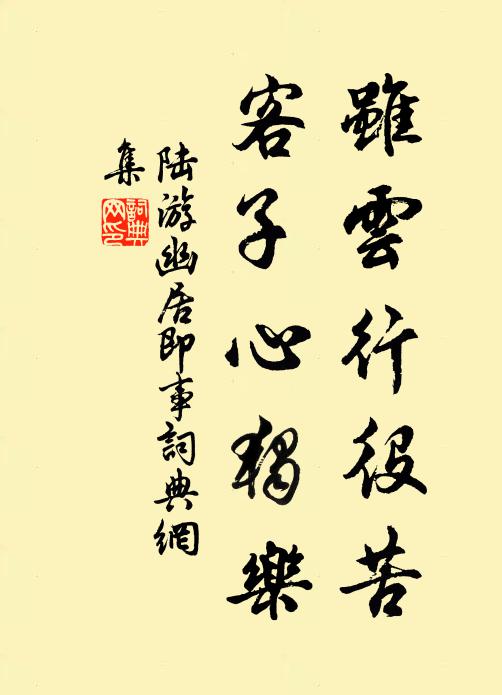 雖雲行役苦
客子心獨樂
陸游幽居即事詞典網
集
詞典
网印